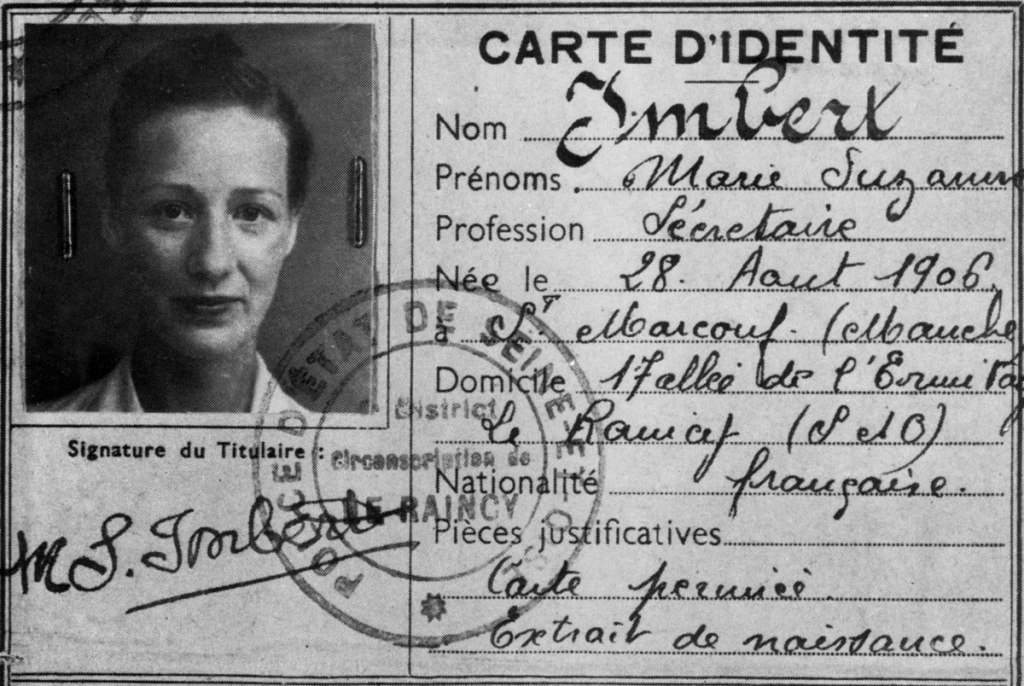 CARTE D'IDENTITÉ
Nom Imbert
Prénoms. Marie Suzanne
Profession Sécretaire
Née le 28. Aout 1906
à St Marcouf. (Manche
Domicile 17 allée de l'Ermitag
Le Raincy (S et O)
Nationalité française.
Pièces justificatives
Carte
Extrait de naissance.
Signature du Titulaire :
M S. Imbert
POLICE D'ETAT DE SEINE-ET-O
District
Circonscription de
LE RAINCY